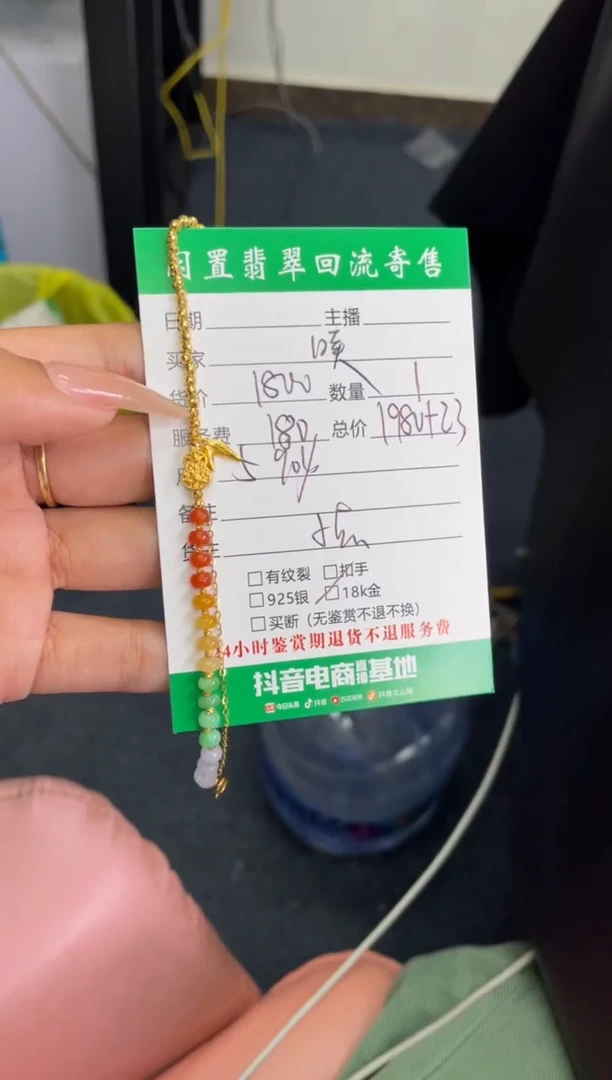 闲置翡翠回流寄售
日期 主播
买家
货价 1800 数量 1
服务费 180 总价 1980+23
5 90%
备注
货主
有纹裂 扣手
925银 18k金
买断（无鉴赏不退不换）
24小时鉴赏期退货不退服务费
抖音电商直播基地
今日头条 抖音 西瓜视频 抖音火山版